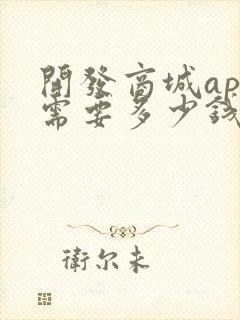 開發商城ap
需要多少錢
衛尔未